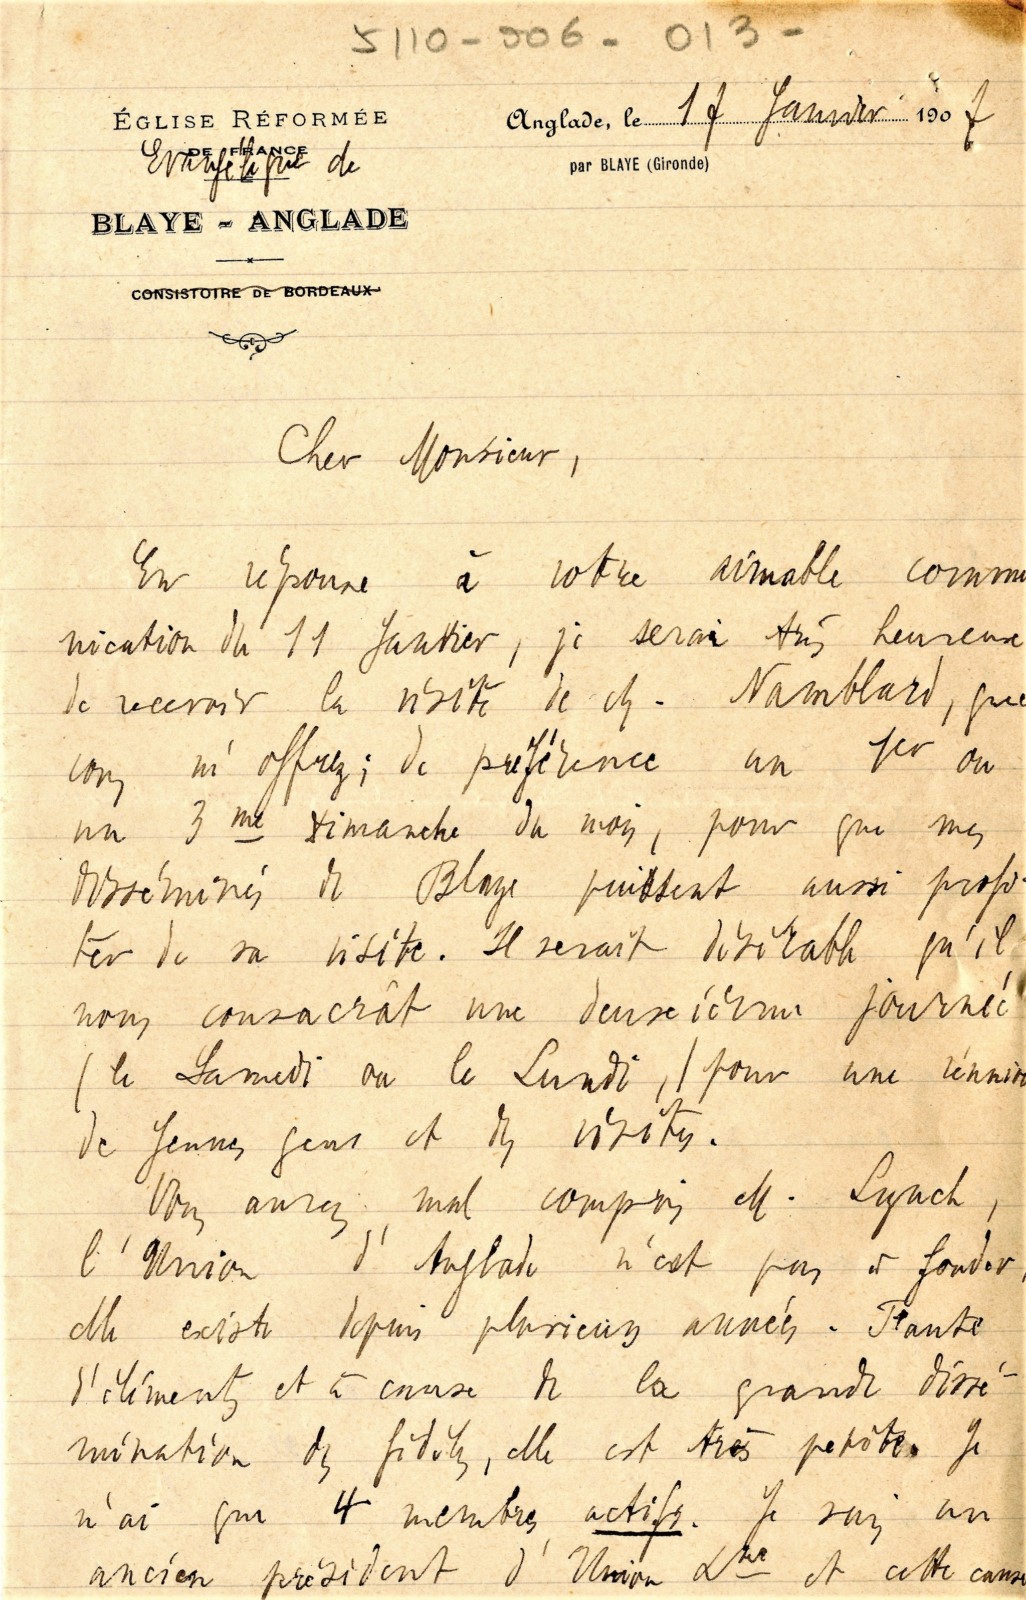 5110-906-013-
ÉGLISE RÉFORMÉE
DE FRANCE
Evangélique de
BLAYE - ANGLADE
CONSISTOIRE DE BORDEAUX
Anglade, le 17 Janvier 1907
par BLAYE (Gironde)
Cher Monsieur,
En réponse à votre aimable commu
nication du 11 Janvier, je serai très heureux
de recevoir la visite de M. Namblard, que
vous m'offrez; de préférence un 1er ou
un 3me dimanche du mois, pour que mes
disséminés de Blaye puissent aussi profi-
ter de sa visite. Il serait désirable qu'il
nous consacrât une deuxième journée
(le Samedi ou le Lundi,) pour une réunion
de Jeunes gens et des visites.
Vous aurez mal compris M. Lynch,
l'Union d'Anglade n'est pas à fonder,
elle existe depuis plusieurs années. Faute
d'éléments et à cause de la grande dissé-
mination des fidèles, elle est très petite. Je
n'ai que 4 membres actifs. Je suis un
ancien président d'Union Xne et cette cause